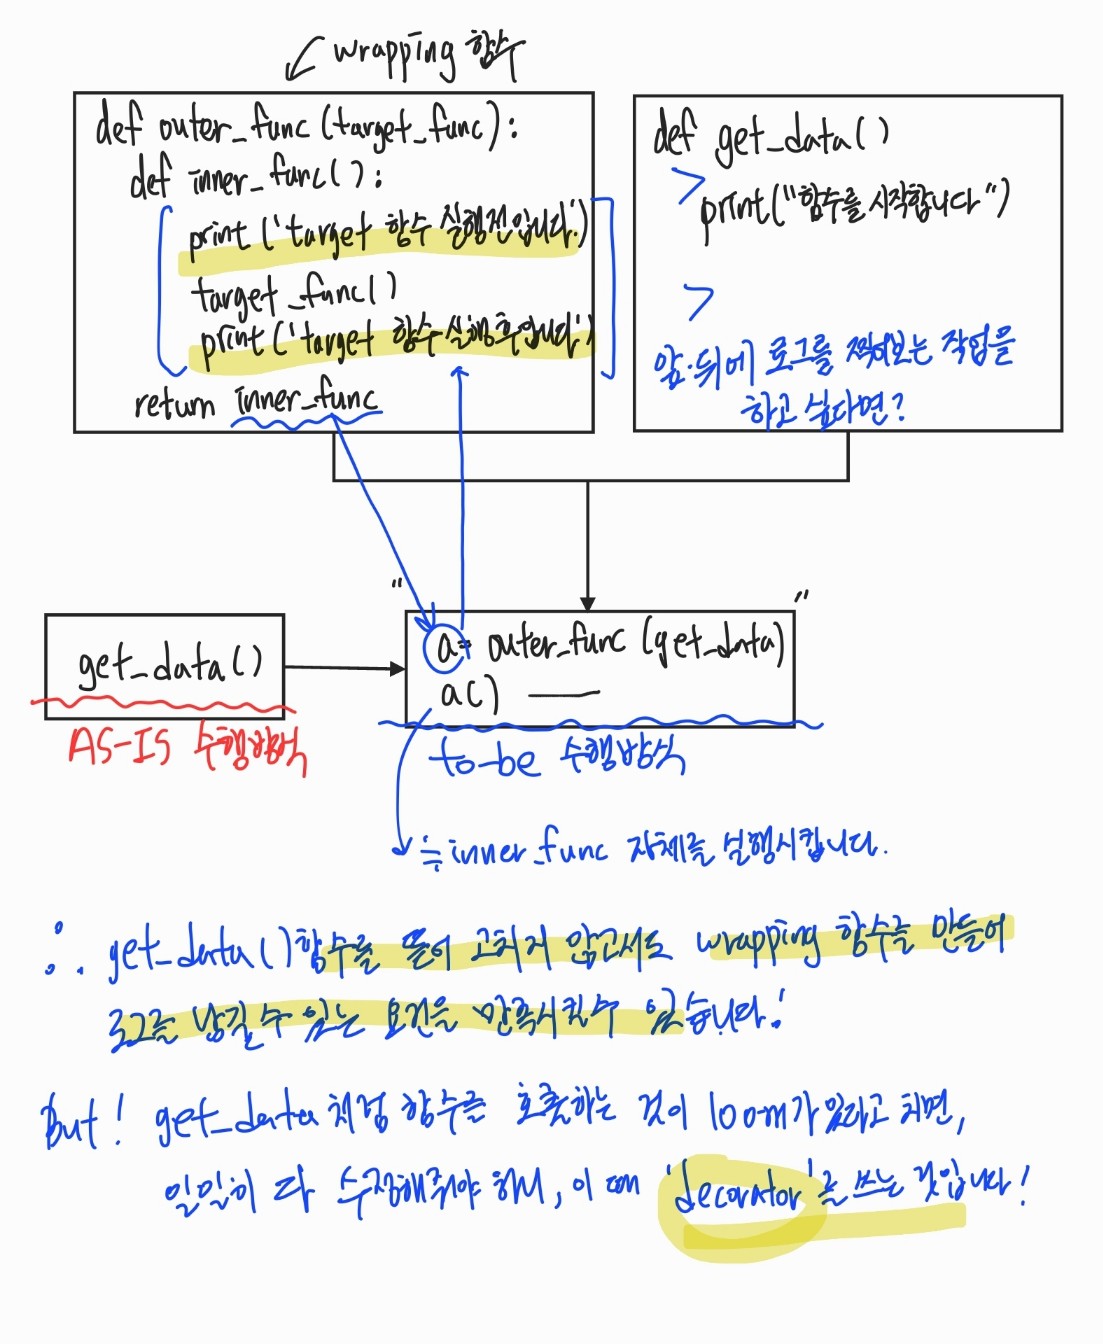 wrapping 함수
def outer_func (target_func):
def inner_func():
print ('target 함수 실행전입니다.')
target_func()
print ('target 함수 실행후입니다')
return inner_func
def get_data()
print("함수를 시작합니다")
앞·뒤에 로그를 찍어보는 작업을
하고 싶다면?
get_data()
AS-IS 수행방식
" a= outer_func (get_data) "
a()
to-be 수행방식
≒ inner_func 자체를 실행시킵니다.
∴ get_data()함수를 뜯어 고치지 않고서도 wrapping 함수를 만들어
로그를 남길 수 있는 요건을 만족시킬수 있습니다!
But! get_data처럼 함수를 호출하는 것이 100개가 있다고 치면,
일일히 다 수정해줘야 하니, 이 때 'decorator'를 쓰는 것입니다!